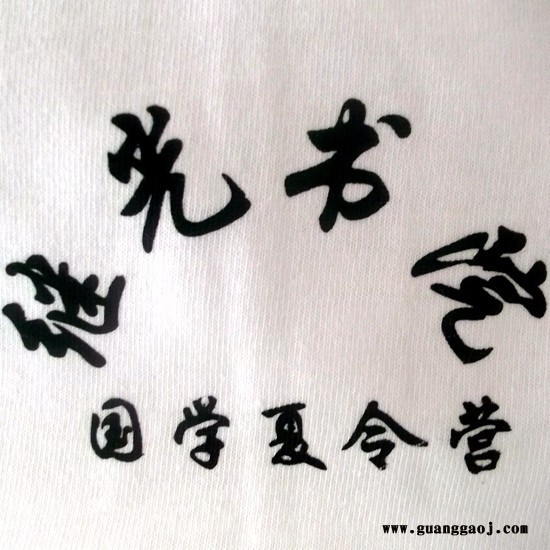 继光书院
国学夏令营
www.guanggaoj.com